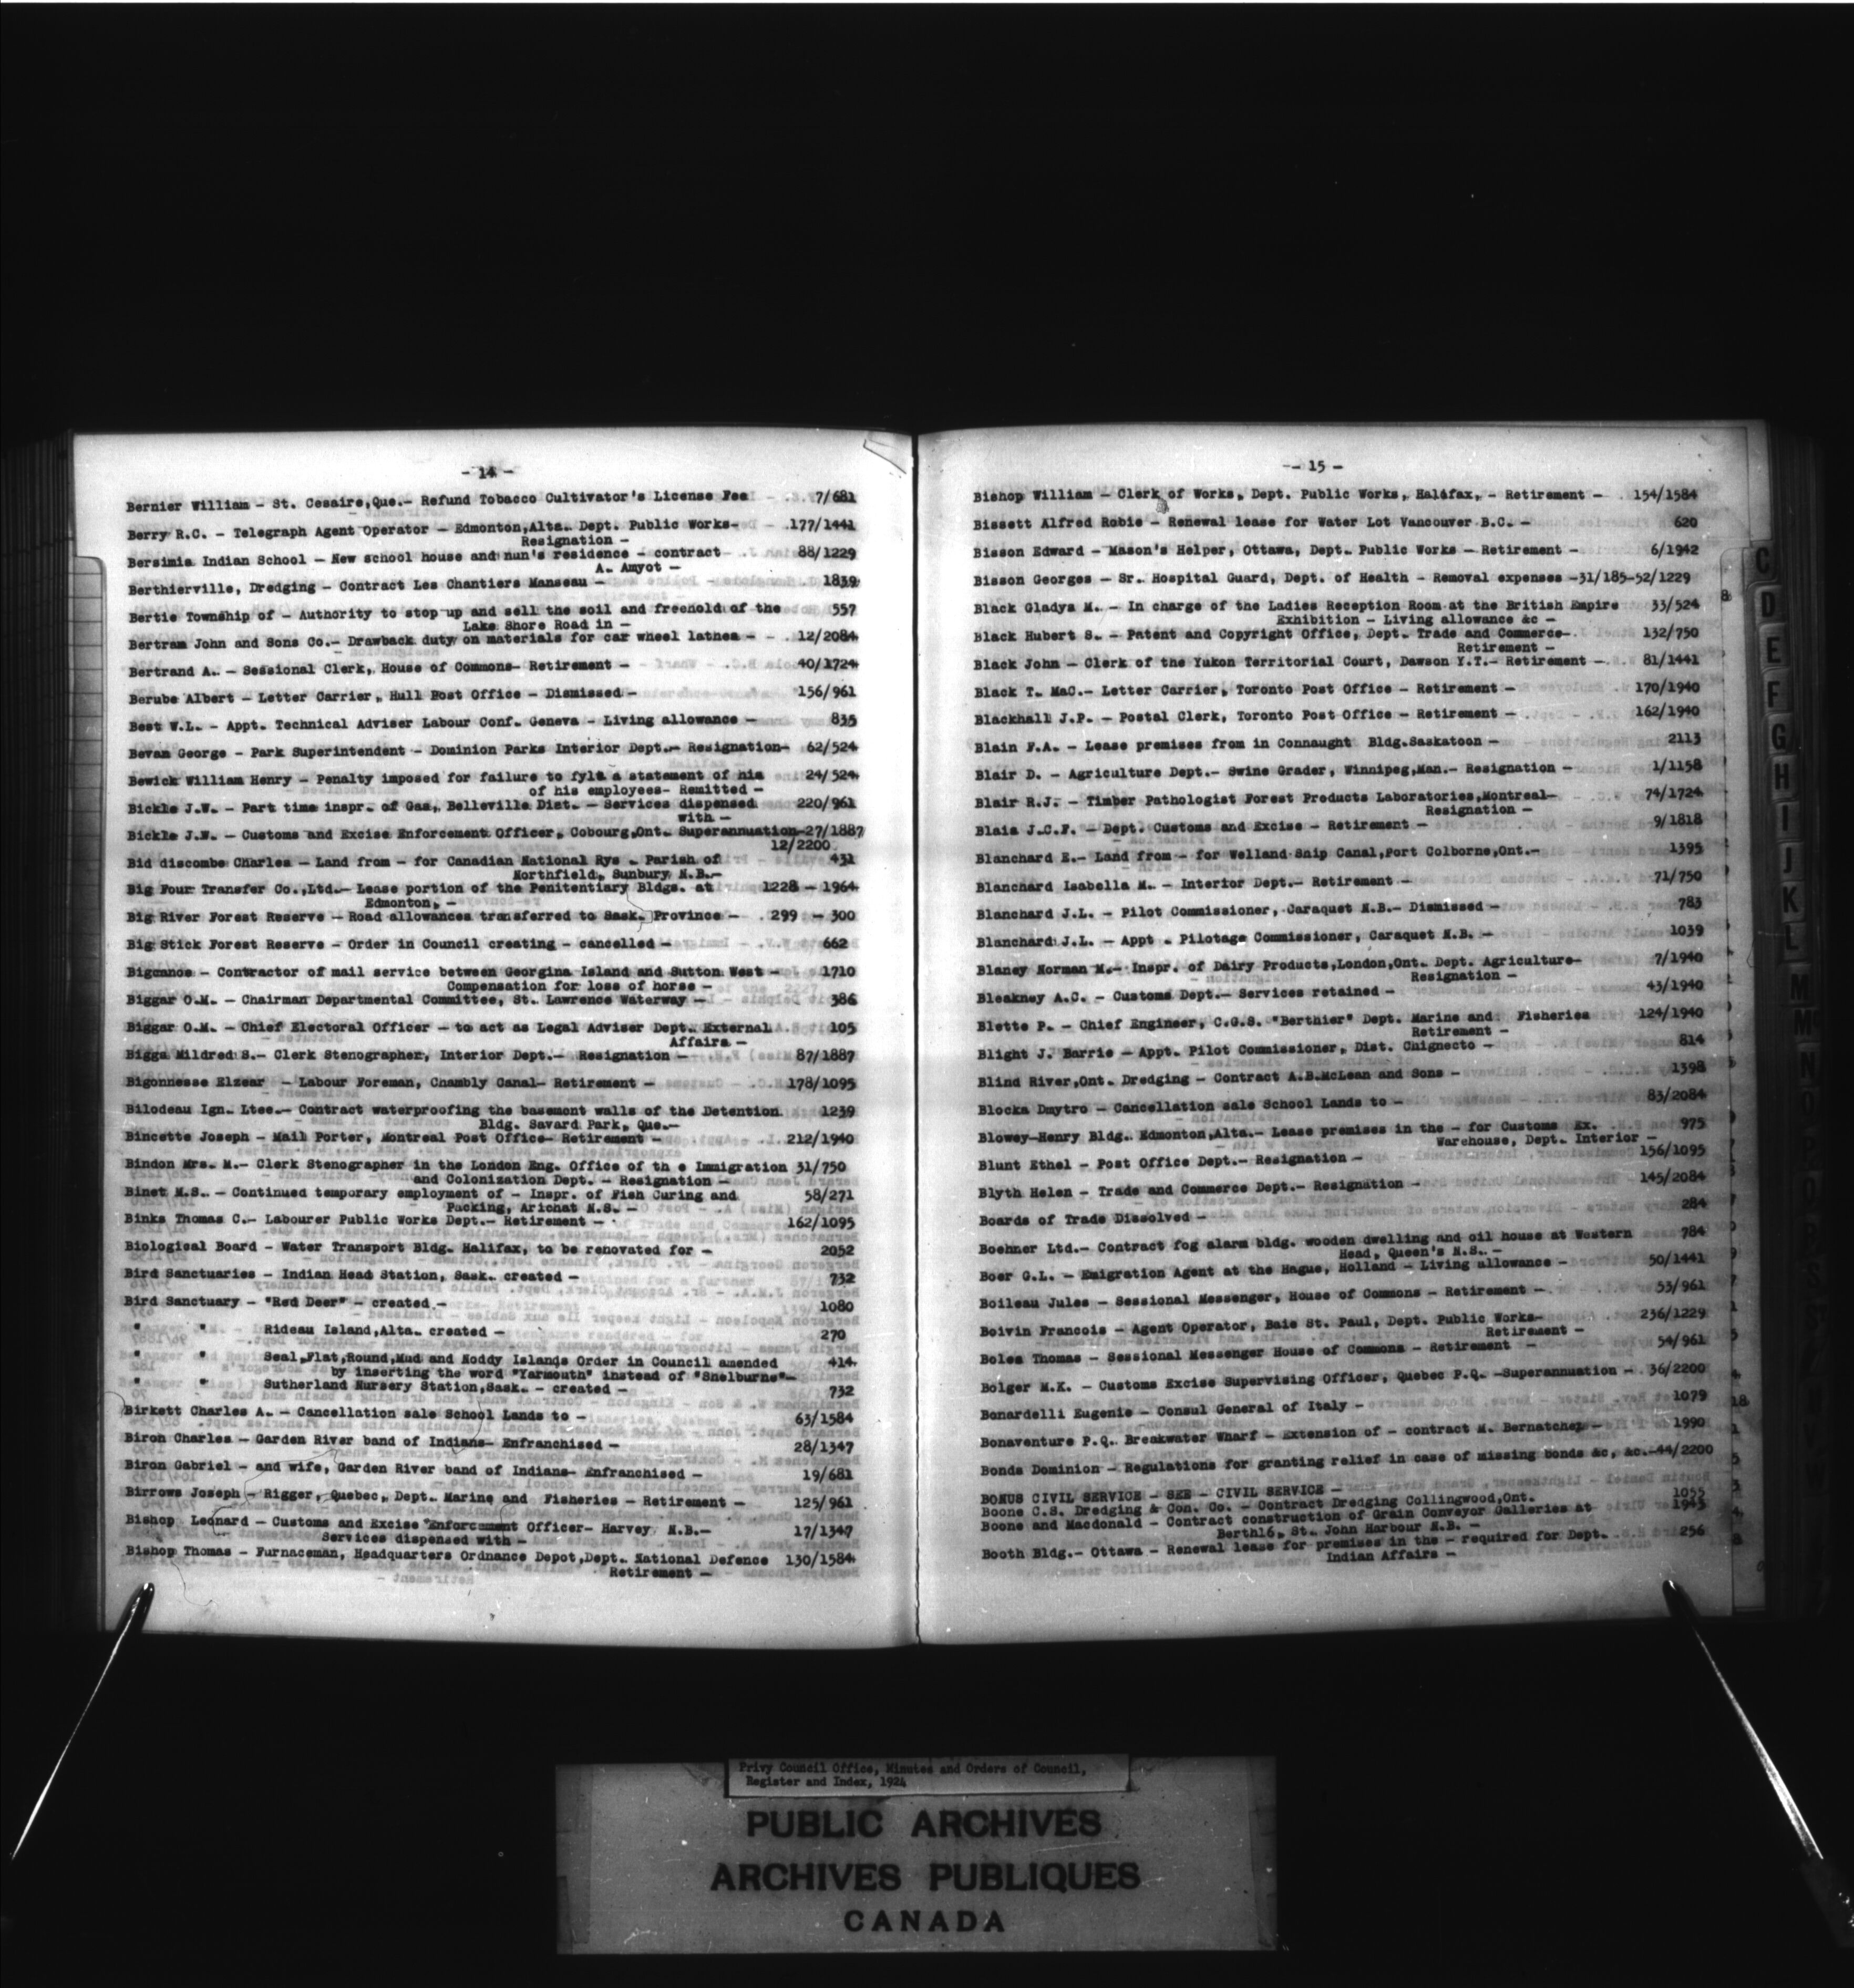 - 14 -
Bernier William - St. Cesaire,Que.- Refund Tobacco Cultivator's License Fee 7/681
Berry R.C. - Telegraph Agent Operator - Edmonton,Alta. Dept. Public Works- 177/1441
Resignation -
Bersimis Indian School - New school house and nun's residence - contract 88/1229
A. Amyot -
Berthierville, Dredging - Contract Les Chantiers Manseau - 1839
Bertie Township of - Authority to stop up and sell the soil and freehold of the 557
Lake Shore Road in -
Bertram John and Sons Co.- Drawback duty on materials for car wheel lathes - 12/2084
Bertrand A. - Sessional Clerk, House of Commons- Retirement - 40/1724
Berube Albert - Letter Carrier, Hull Post Office - Dismissed - 156/961
Best W.L. - Appt. Technical Adviser Labour Conf. Geneva - Living allowance - 835
Bevan George - Park Superintendent - Dominion Parks Interior Dept.- Resignation- 62/524
Bewick William Henry - Penalty imposed for failure to fyle a statement of his 24/524
of his employees- Remitted -
Bickle J.W. - Part time inspr. of Gas, Belleville Dist. - Services dispensed 220/961
with -
Bickle J.W. - Customs and Excise Enforcement Officer, Cobourg,Ont. Superannuation-27/1887
12/2200
Bid discombe Charles - Land from - for Canadian National Rys - Parish of 431
Northfield, Sunbury N.B.-
Big Four Transfer Co.,Ltd.- Lease portion of the Penitentiary Bldgs. at 1228 - 1964
Edmonton, -
Big River Forest Reserve - Road allowances transferred to Sask. Province - 299 - 300
Big Stick Forest Reserve - Order in Council creating - cancelled - 662
Bigcanoe - Contractor of mail service between Georgina Island and Sutton West - 1710
Compensation for loss of horse -
Biggar O.M. - Chairman Departmental Committee, St. Lawrence Waterway - 386
Biggar O.M. - Chief Electoral Officer - to act as Legal Adviser Dept. External 105
Affairs -
Biggs Mildred S.- Clerk Stenographer, Interior Dept.- Resignation - 87/1887
Bigonnesse Elzear - Labour Foreman, Chambly Canal- Retirement - 178/1095
Bilodeau Ign. Ltee.- Contract waterproofing the basement walls of the Detention 1239
Bldg. Savard Park, Que.-
Bincette Joseph - Mail Porter, Montreal Post Office- Retirement - 212/1940
Bindon Mrs. M.- Clerk Stenographer in the London Eng. Office of th e Immigration 31/750
and Colonization Dept. - Resignation -
Binet M.S. - Continued temporary employment of - Inspr. of Fish Curing and 58/271
Packing, Arichat N.S. -
Binks Thomas C.- Labourer Public Works Dept.- Retirement - 162/1095
Biological Board - Water Transport Bldg. Halifax, to be renovated for - 2052
Bird Sanctuaries - Indian Head Station, Sask. created - 732
Bird Sanctuary - "Red Deer" - created - 1080
" " Rideau Island,Alta. created - 270
" " Seal,Flat,Round,Mud and Noddy Islands Order in Council amended 414
by inserting the word "Yarmouth" instead of "Shelburne"-
" " Sutherland Nursery Station,Sask. - created - 732
Birkett Charles A. - Cancellation sale School Lands to - 63/1584
Biron Charles - Garden River band of Indians- Enfranchised - 28/1347
Biron Gabriel - and wife, Garden River band of Indians- Enfranchised - 19/681
Birrows Joseph - Rigger, Quebec, Dept. Marine and Fisheries - Retirement - 125/961
Bishop Leonard - Customs and Excise Enforcement Officer- Harvey N.B.- 17/1347
Services dispensed with -
Bishop Thomas - Furnaceman, Headquarters Ordnance Depot,Dept. National Defence 130/1584
Retirement -
- 15 -
Bishop William - Clerk of Works, Dept. Public Works, Halifax, - Retirement - 154/1584
Bissett Alfred Robie - Renewal lease for Water Lot Vancouver B.C. - 620
Bisson Edward - Mason's Helper, Ottawa, Dept. Public Works - Retirement - 6/1942
Bisson Georges - Sr. Hospital Guard, Dept. of Health - Removal expenses -31/185-52/1229
Black Gladys M. - In charge of the Ladies Reception Room at the British Empire 33/524
Exhibition - Living allowance &c -
Black Hubert S. - Patent and Copyright Office, Dept. Trade and Commerce- 132/750
Retirement -
Black John - Clerk of the Yukon Territorial Court, Dawson Y.T.- Retirement - 81/1441
Black T. MaC.- Letter Carrier, Toronto Post Office - Retirement - 170/1940
Blackhall J.P. - Postal Clerk, Toronto Post Office - Retirement - 162/1940
Blain F.A. - Lease premises from in Connaught Bldg.Saskatoon - 2113
Blair D. - Agriculture Dept.- Swine Grader, Winnipeg,Man.- Resignation - 1/1158
Blair R.J. - Timber Pathologist Forest Products Laboratories,Montreal- 74/1724
Resignation -
Blais J.C.F. - Dept. Customs and Excise - Retirement - 9/1818
Blanchard E.- Land from - for Welland Ship Canal,Port Colborne,Ont.- 1395
Blanchard Isabella M. - Interior Dept.- Retirement - 71/750
Blanchard J.L. - Pilot Commissioner, Caraquet N.B.- Dismissed - 783
Blanchard J.L. - Appt - Pilotage Commissioner, Caraquet N.B. - 1039
Blaney Norman M.- Inspr. of Dairy Products,London,Ont. Dept. Agriculture- 7/1940
Resignation -
Bleakney A.C. - Customs Dept.- Services retained - 43/1940
Blette P. - Chief Engineer, C.G.S. "Berthier" Dept. Marine and Fisheries 124/1940
Retirement -
Blight J. Barrie - Appt. Pilot Commissioner, Dist. Chignecto - 814
Blind River,Ont. Dredging - Contract A.B.McLean and Sons - 1398
Blocka Dmytro - Cancellation sale School Lands to - 83/2084
Blowey-Henry Bldg. Edmonton,Alta.- Lease premises in the - for Customs Ex. 975
Warehouse, Dept. Interior -
Blunt Ethel - Post Office Dept.- Resignation - 156/1095
Blyth Helen - Trade and Commerce Dept.- Resignation - 145/2084
Boards of Trade Dissolved - 284
Boehner Ltd.- Contract fog alarm bldg. wooden dwelling and oil house at Western 784
Head, Queen's N.S. -
Boer G.L. - Emigration Agent at the Hague, Holland - Living allowance - 50/1441
Boileau Jules - Sessional Messenger, House of Commons - Retirement - 53/961
Boivin Francois - Agent Operator, Baie St. Paul, Dept. Public Works- 236/1229
Retirement -
Boles Thomas - Sessional Messenger House of Commons - Retirement - 54/961
Bolger M.K. - Customs Excise Supervising Officer, Quebec P.Q. -Superannuation - 36/2200
Bonardelli Eugenie - Consul General of Italy - 1079
Bonaventure P.Q. Breakwater Wharf - Extension of - contract M. Bernatchez - 1990
Bonds Dominion - Regulations for granting relief in case of missing bonds &c, &c.-44/2200
BONUS CIVIL SERVICE - SEE - CIVIL SERVICE -
Boone C.S. Dredging & Con. Co. - Contract Dredging Collingwood,Ont. 1055
Boone and Macdonald - Contract construction of Grain Conveyor Galleries at 1943
Berth16, St. John Harbour N.B. -
Booth Bldg.- Ottawa - Renewal lease for premises in the - required for Dept. 256
Indian Affairs -
C
D
E
F
G
H
I
J
K
L
M
Privy Council Office, Minutes and Orders of Council,
Register and Index, 1924
PUBLIC ARCHIVES
ARCHIVES PUBLIQUES
CANADA